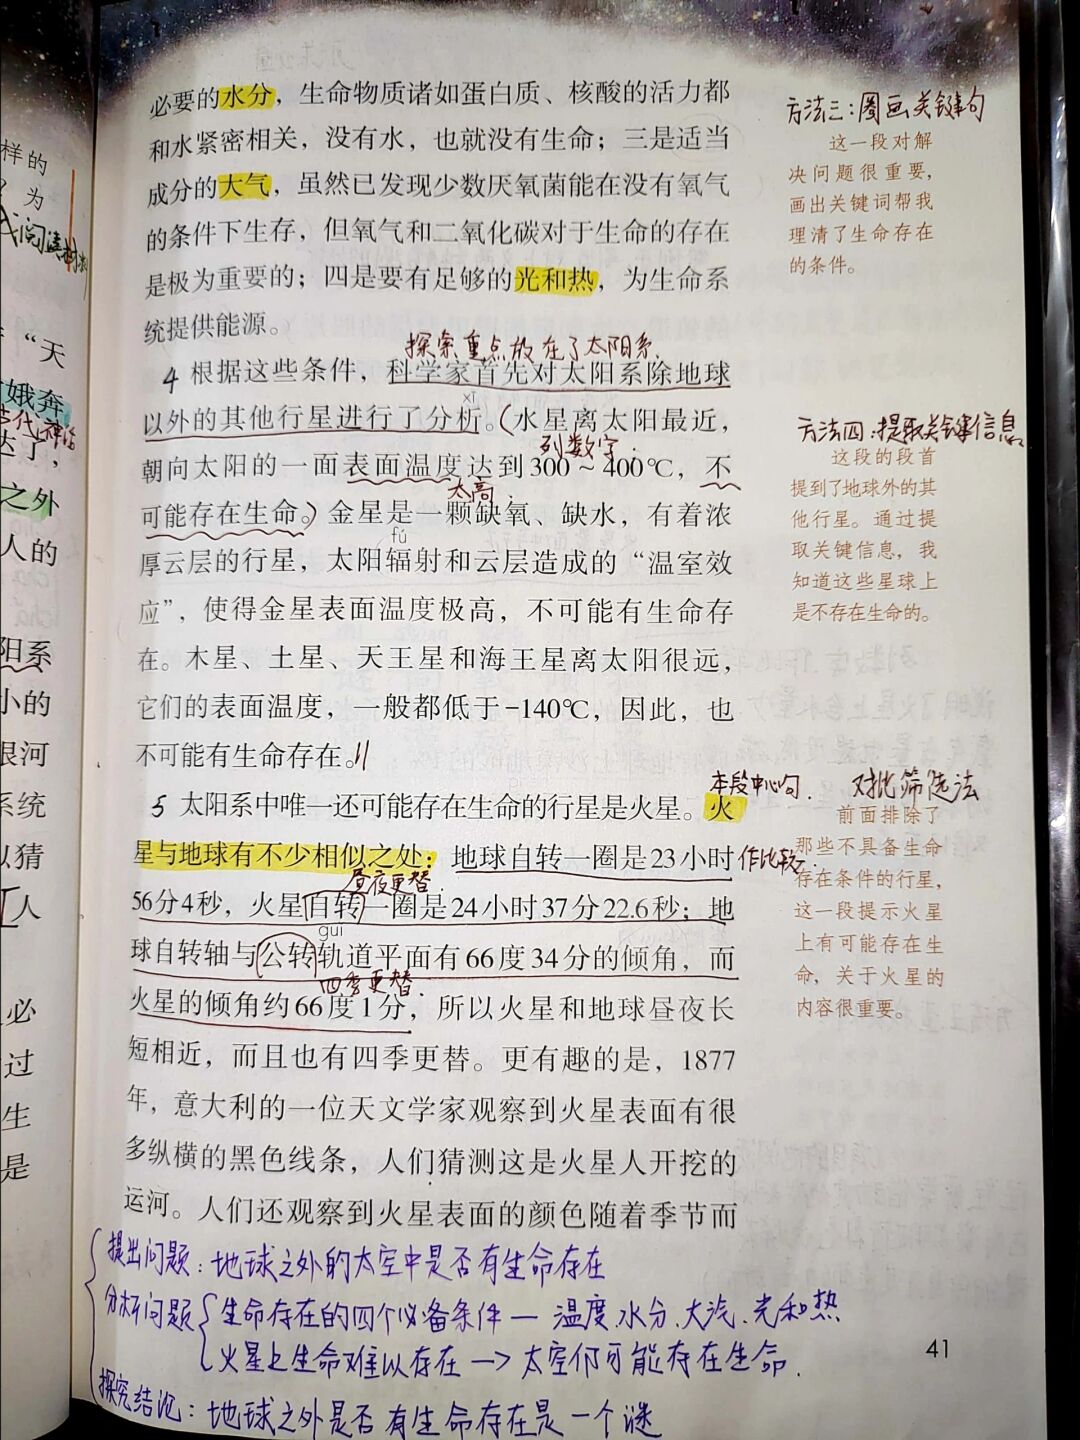 必要的水分，生命物质诸如蛋白质、核酸的活力都
和水紧密相关，没有水，也就没有生命；三是适当
成分的大气，虽然已发现少数厌氧菌能在没有氧气
的条件下生存，但氧气和二氧化碳对于生命的存在
是极为重要的；四是要有足够的光和热，为生命系
统提供能源。
探索重点放在了太阳系.
4 根据这些条件，科学家首先对太阳系除地球
以外的其他行星进行了分析。(水星离太阳最近，
xī
列数字.
朝向太阳的一面表面温度达到300～400℃，不
太高.
可能存在生命。)金星是一颗缺氧、缺水，有着浓
fú
厚云层的行星，太阳辐射和云层造成的“温室效
应”，使得金星表面温度极高，不可能有生命存
在。木星、土星、天王星和海王星离太阳很远，
它们的表面温度，一般都低于-140℃，因此，也
不可能有生命存在。
本段中心句.
5 太阳系中唯一还可能存在生命的行星是火星。火
星与地球有不少相似之处：地球自转一圈是23小时
作比较.
昼夜更替.
56分4秒，火星自转一圈是24小时37分22.6秒；地
guǐ
球自转轴与公转轨道平面有66度34分的倾角，而
四季更替.
火星的倾角约66度1分，所以火星和地球昼夜长
短相近，而且也有四季更替。更有趣的是，1877
年，意大利的一位天文学家观察到火星表面有很
多纵横的黑色线条，人们猜测这是火星人开挖的
运河。人们还观察到火星表面的颜色随着季节而
方法三：圈画关键句
这一段对解
决问题很重要，
画出关键词帮我
理清了生命存在
的条件。
方法四：提取关键信息
这段的段首
提到了地球外的其
他行星。通过提
取关键信息，我
知道这些星球上
是不存在生命的。
对比筛选法
前面排除了
那些不具备生命
存在条件的行星，
这一段提示火星
上有可能存在生
命，关于火星的
内容很重要。
提出问题：地球之外的太空中是否有生命存在
分析问题
生命存在的四个必备条件 — 温度、水分、大汽、光和热
火星上生命难以存在 → 太空仍可能存在生命.
探究结论：地球之外是否有生命存在是一个谜
41
样的
为
“天
娥奔
达了，
之外
人的
阳系
小的
银河
系统
以猜
人
必
过
生
是